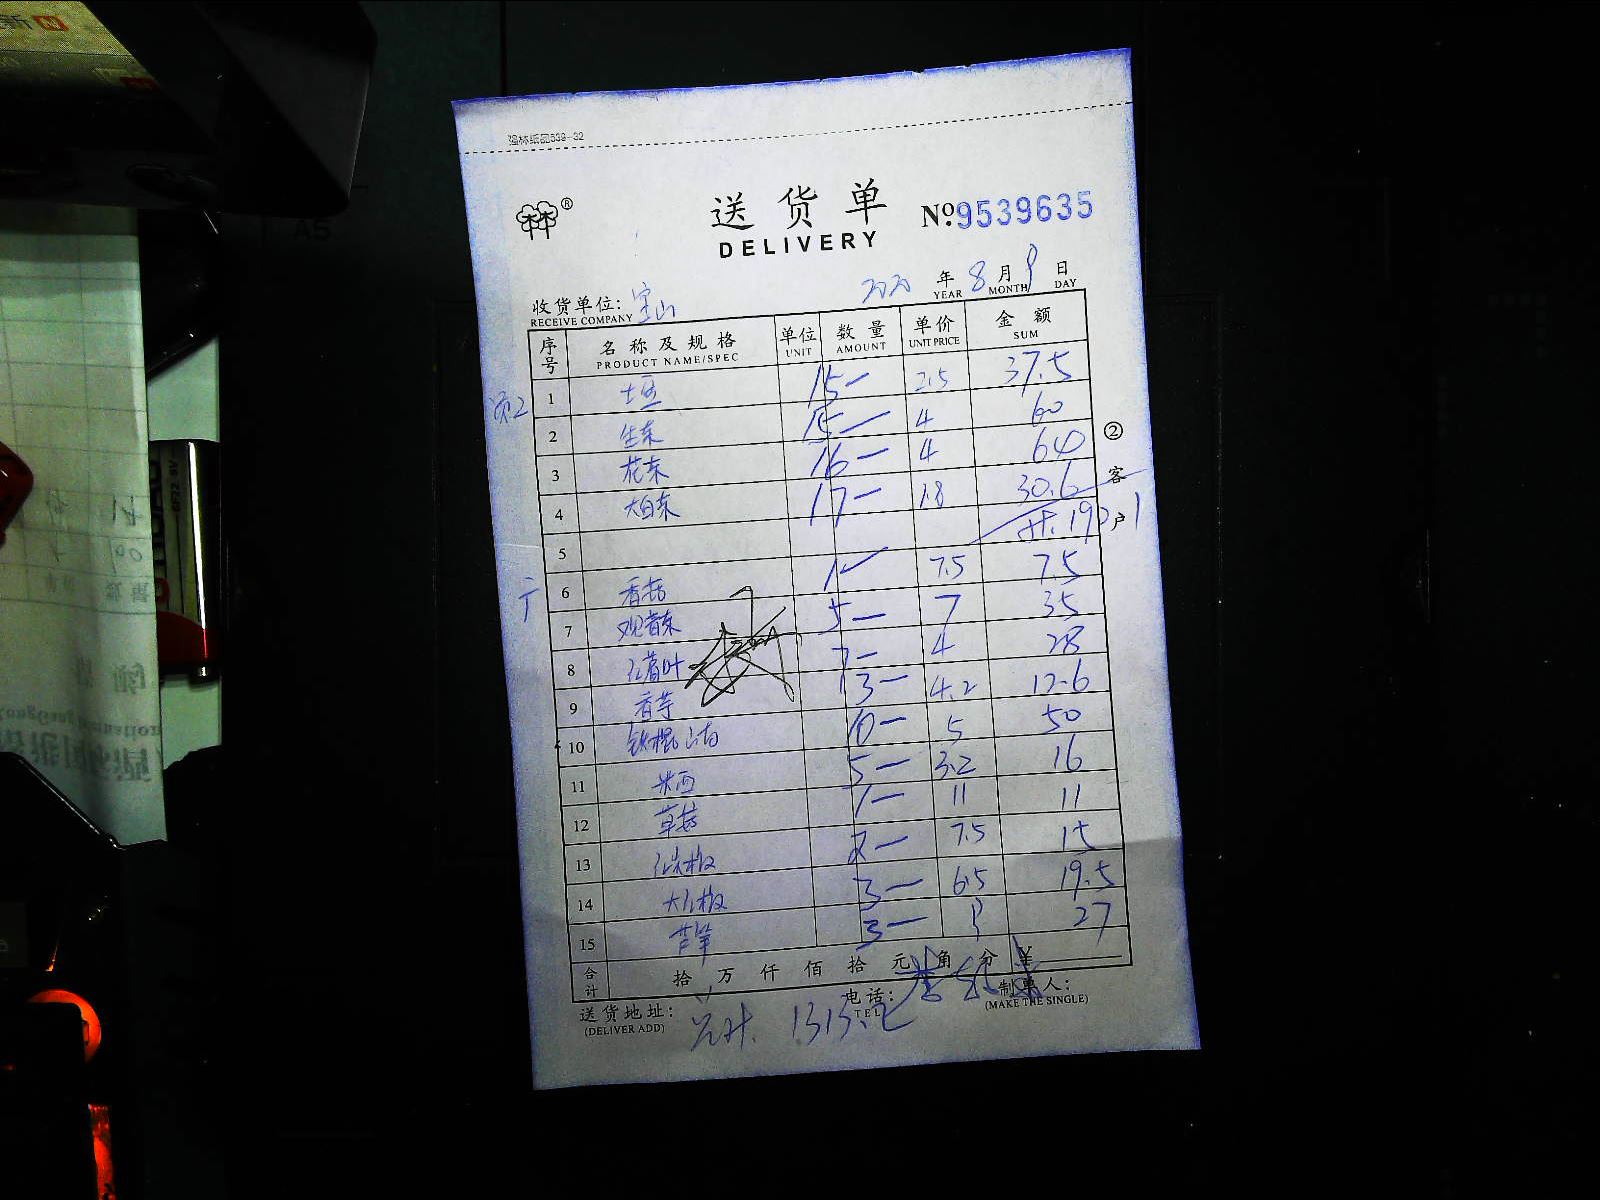 强林纸品539-32
®
送货单 №:9539635
DELIVERY
2020 年 8 月 9 日
YEAR MONTH DAY
收货单位: 宝山
RECEIVE COMPANY
序号 名称及规格 单位 数量 单价 金额
PRODUCT NAME/SPEC UNIT AMOUNT UNIT PRICE SUM
1 土豆 15— 2.5 37.5
2 生菜 15— 4 60
3 花菜 16— 4 64
4 大白菜 17— 1.8 30.6
5 计.192.1
6 香菇 1— 7.5 7.5
7 观音菜 5— 7 35
8 红薯叶 7— 4 28
9 香芋 3— 4.2 12.6
10 铁棍山药 10— 5 50
11 5— 3.2 16
12 草菇 1— 11 11
13 红尖椒 2— 7.5 15
14 大红椒 3— 6.5 19.5
15 芦笋 3— 9 27
②客户
合计 拾 万 仟 佰 拾 元 角 分 ¥
送货地址: 电话: 制单人:
(DELIVER ADD) TEL (MAKE THE SINGLE)
总计.
A5